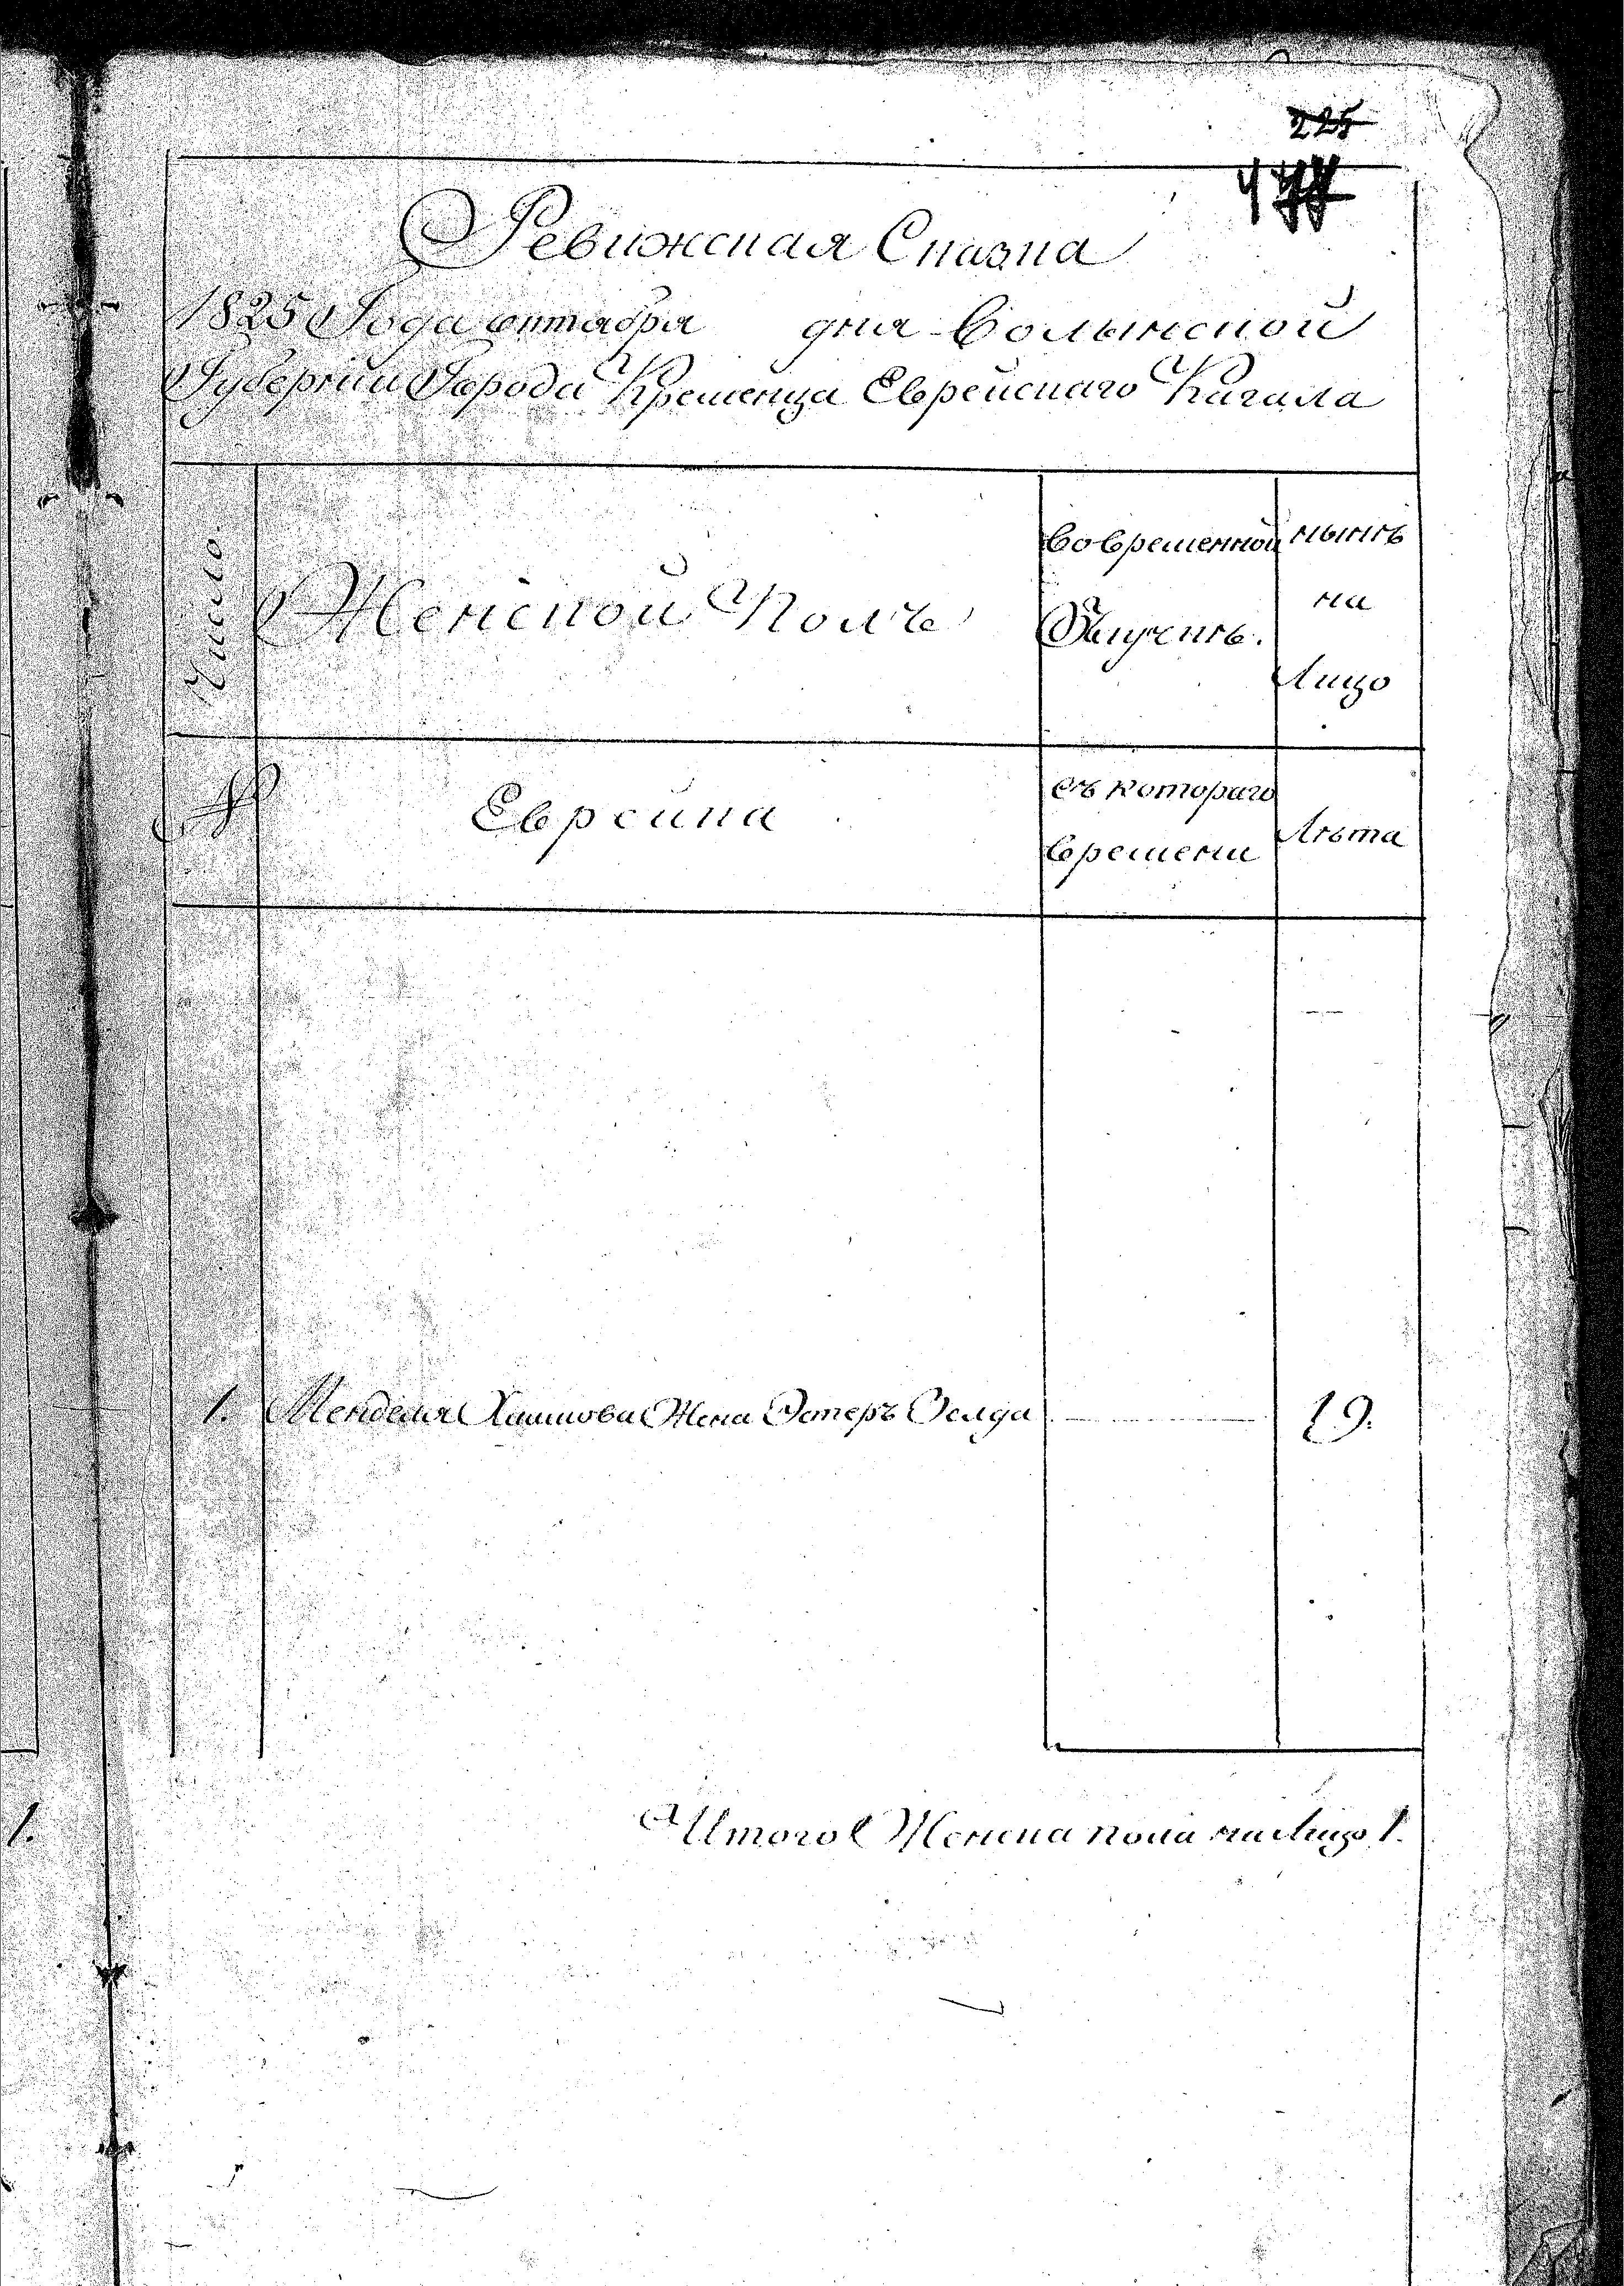 225
Ревижская Сказка
1825 Года октября дня Волынской
Губернии Города Кременца Еврейскаго Кагала
Число
Женской Полъ
Во временной
Отлучкѣ.
нынѣ
на
Лицо
№
Еврейка
Съ котораго
времени
Лѣта
1. Менделя Хаимова Жена Эстеръ Зелда 19.
Итого Женска пола на Лицо 1.
1.